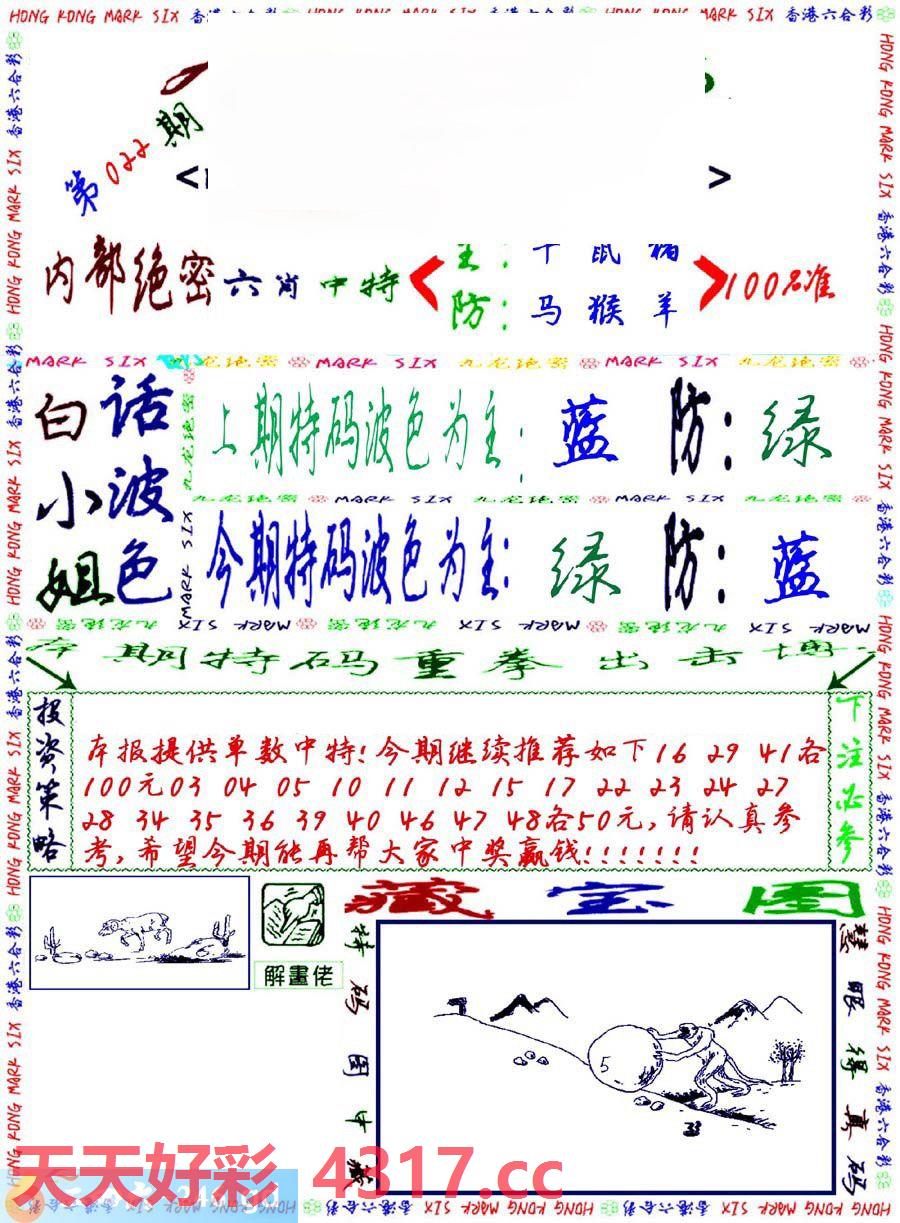 HONG KONG MARK SIX 香港六合彩
第022期
< >
内部绝密六肖中特
防：马猴羊
100%准
MARK SIX 九龙绝密 MARK SIX 九龙绝密 MARK SIX 九龙绝密
白话小波姐色
上期特码波色为主：蓝 防：绿
九龙绝密 MARK SIX 九龙绝密 MARK SIX 九龙绝密
今期特码波色为主：绿 防：蓝
期特码重拳出击
投资策略
本报提供单数中特！今期继续推荐如下16 29 41各
100元03 04 05 10 11 12 15 17 22 23 24 27
28 34 35 36 39 40 46 47 48各50元，请认真参
考，希望今期能再帮大家中奖赢钱！！！！！！！
下注必参
藏宝图
解畫佬
特码图中藏
慧眼得真码
5
天天好彩 4317.cc